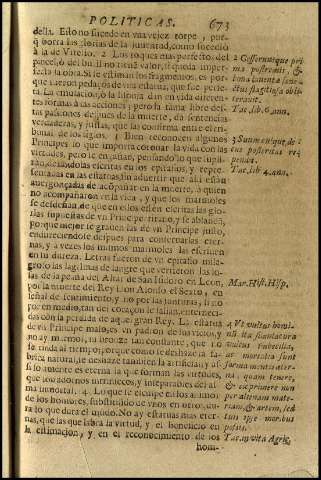 POLITICAS. 673
della. Esto no sucede en una vejez torpe, por-
q borra las glorias de la juventud, como sucedió
à la de Vitelio. 2 Los toques mas perfectos del
pincel, ò del buril no tienen valor, si queda imper-
fecta la obra. Si se estiman los fragmentos, es por-
que fueron pedaços de una estatua, que fue perfe-
ta. La emulacion, ò la lisonja dan en vida diferen-
tes formas à las acciones; pero la fama libre des-
tas passiones, despues de la muerte, da sentencias
verdaderas, y justas, que las confirma el
tribunal de los siglos. 3 Bien reconocen algunos
Principes lo que importa coronar la vida con las
virtudes, pero se engañan, pensando
escritas en los epitafios, y
en las estatuas, sin advertir que allí están
avergonçadas de acompañar en la muerte, à quien
no acompañaron en la vida, y que los marmoles
se desdeñan, de que en ellos estén escritas las glo-
rias supuestas de un Principe tirano, y se ablandan,
porque mejor se graven las de un Principe justo,
endureciendose despues para conservarlas eter-
nas, y a vezes los mismos marmoles las escriven
en su dureza. Letras fueron de un epitafio mila-
groso las lagrimas de sangre que vertieron las lo-
sas de la peaña del Altar de San Isidoro en Leon,
por la muerte del Rey Don Alonso el Sexto, en
señal de sentimiento, y no por las junturas, si no
por en medio,
con la perdida de aquel gran Rey. La estatua
de un Principe malo, es un padron de sus vicios, y
no ay marmol, ni bronze tan constante, que
al tiempo; porque como se deshaze la fa-
brica natural, se deshaze tambien la artificial, y as-
si solamente es eterna la que forman las virtudes,
que son adornos intrinsecos, y inseparables del al-
ma inmortal. 4 Lo que se esculpe en los animos
de los hombres, substituido de unos en otros, du-
ra lo que dura el mundo. No ay estatuas mas eter-
nas, que las que labra la virtud, y el beneficio en
la estimacion, y en el reconocimiento de los
hom-
2 Cesseruntque pri-
ma postremis, &
bona iuventæ senec-
tus flagitiosa oblit-
teravit.
Tac. lib. 6. ann.
3 Suum cuique, de-
cus posteritas re-
pendit.
Tac. lib. 4. ann.
Mar. Hist. Hisp.
4 Ut vultus homi-
num, ita simulacra
vultus imbecilla,
ac mortalia sunt
forma mentis æter-
na, quam tenere,
& exprimere non
per alienam mate-
riam, & artem, sed
tuis ipse moribus
possis.
Tac. in vita Agric.